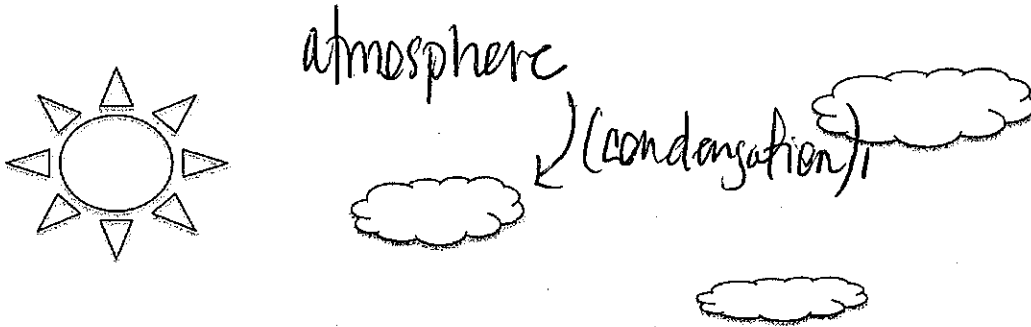 atmosphere
(condensation)